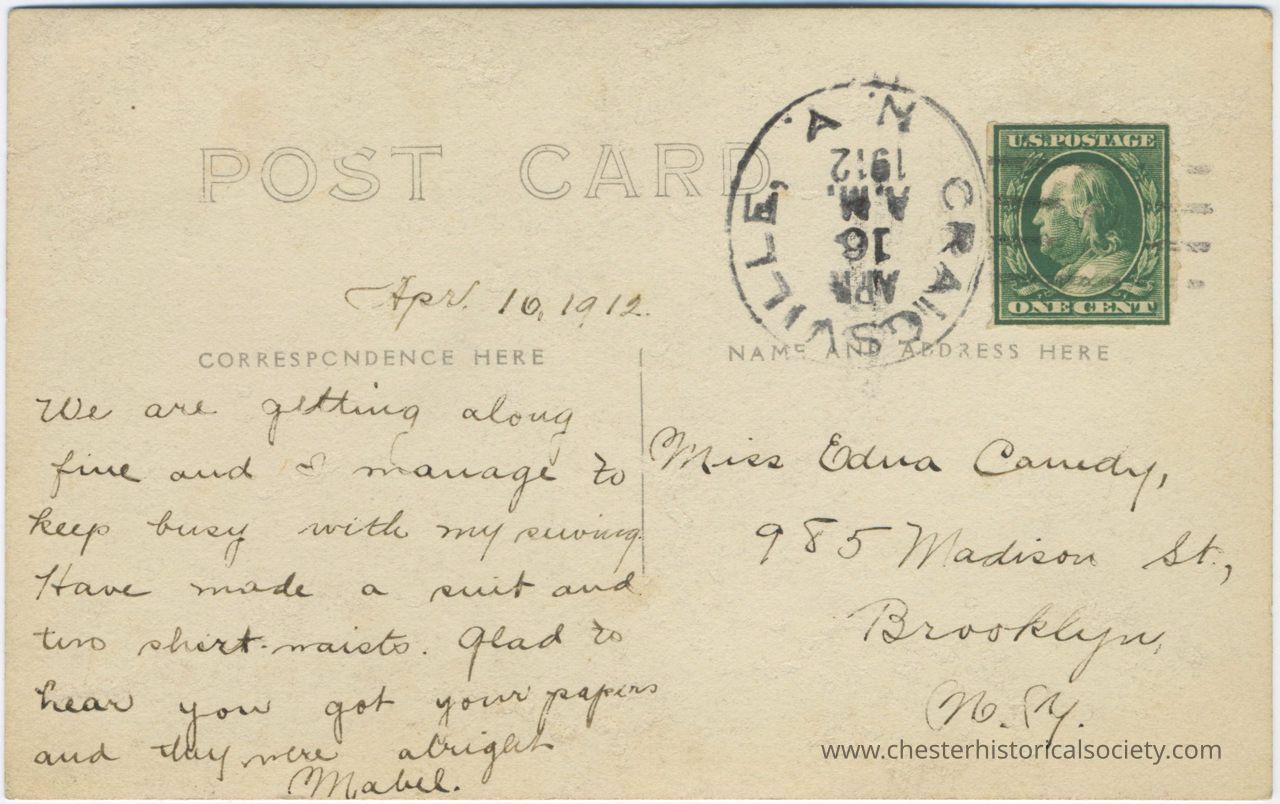 POST CARD
CRAIGSVILLE, N.
APR
16
A.M.
1912
U.S. POSTAGE
ONE CENT
Apr. 16, 1912.
CORRESPONDENCE HERE
We are getting along
fine and I manage to
keep busy with my sewing.
Have made a suit and
two shirt-waists. Glad to
hear you got your papers
and they were alright
Mabel.
NAME AND ADDRESS HERE
Miss Edna Canedy,
985 Madison St.,
Brooklyn,
N.Y.
www.chesterhistoricalsociety.com